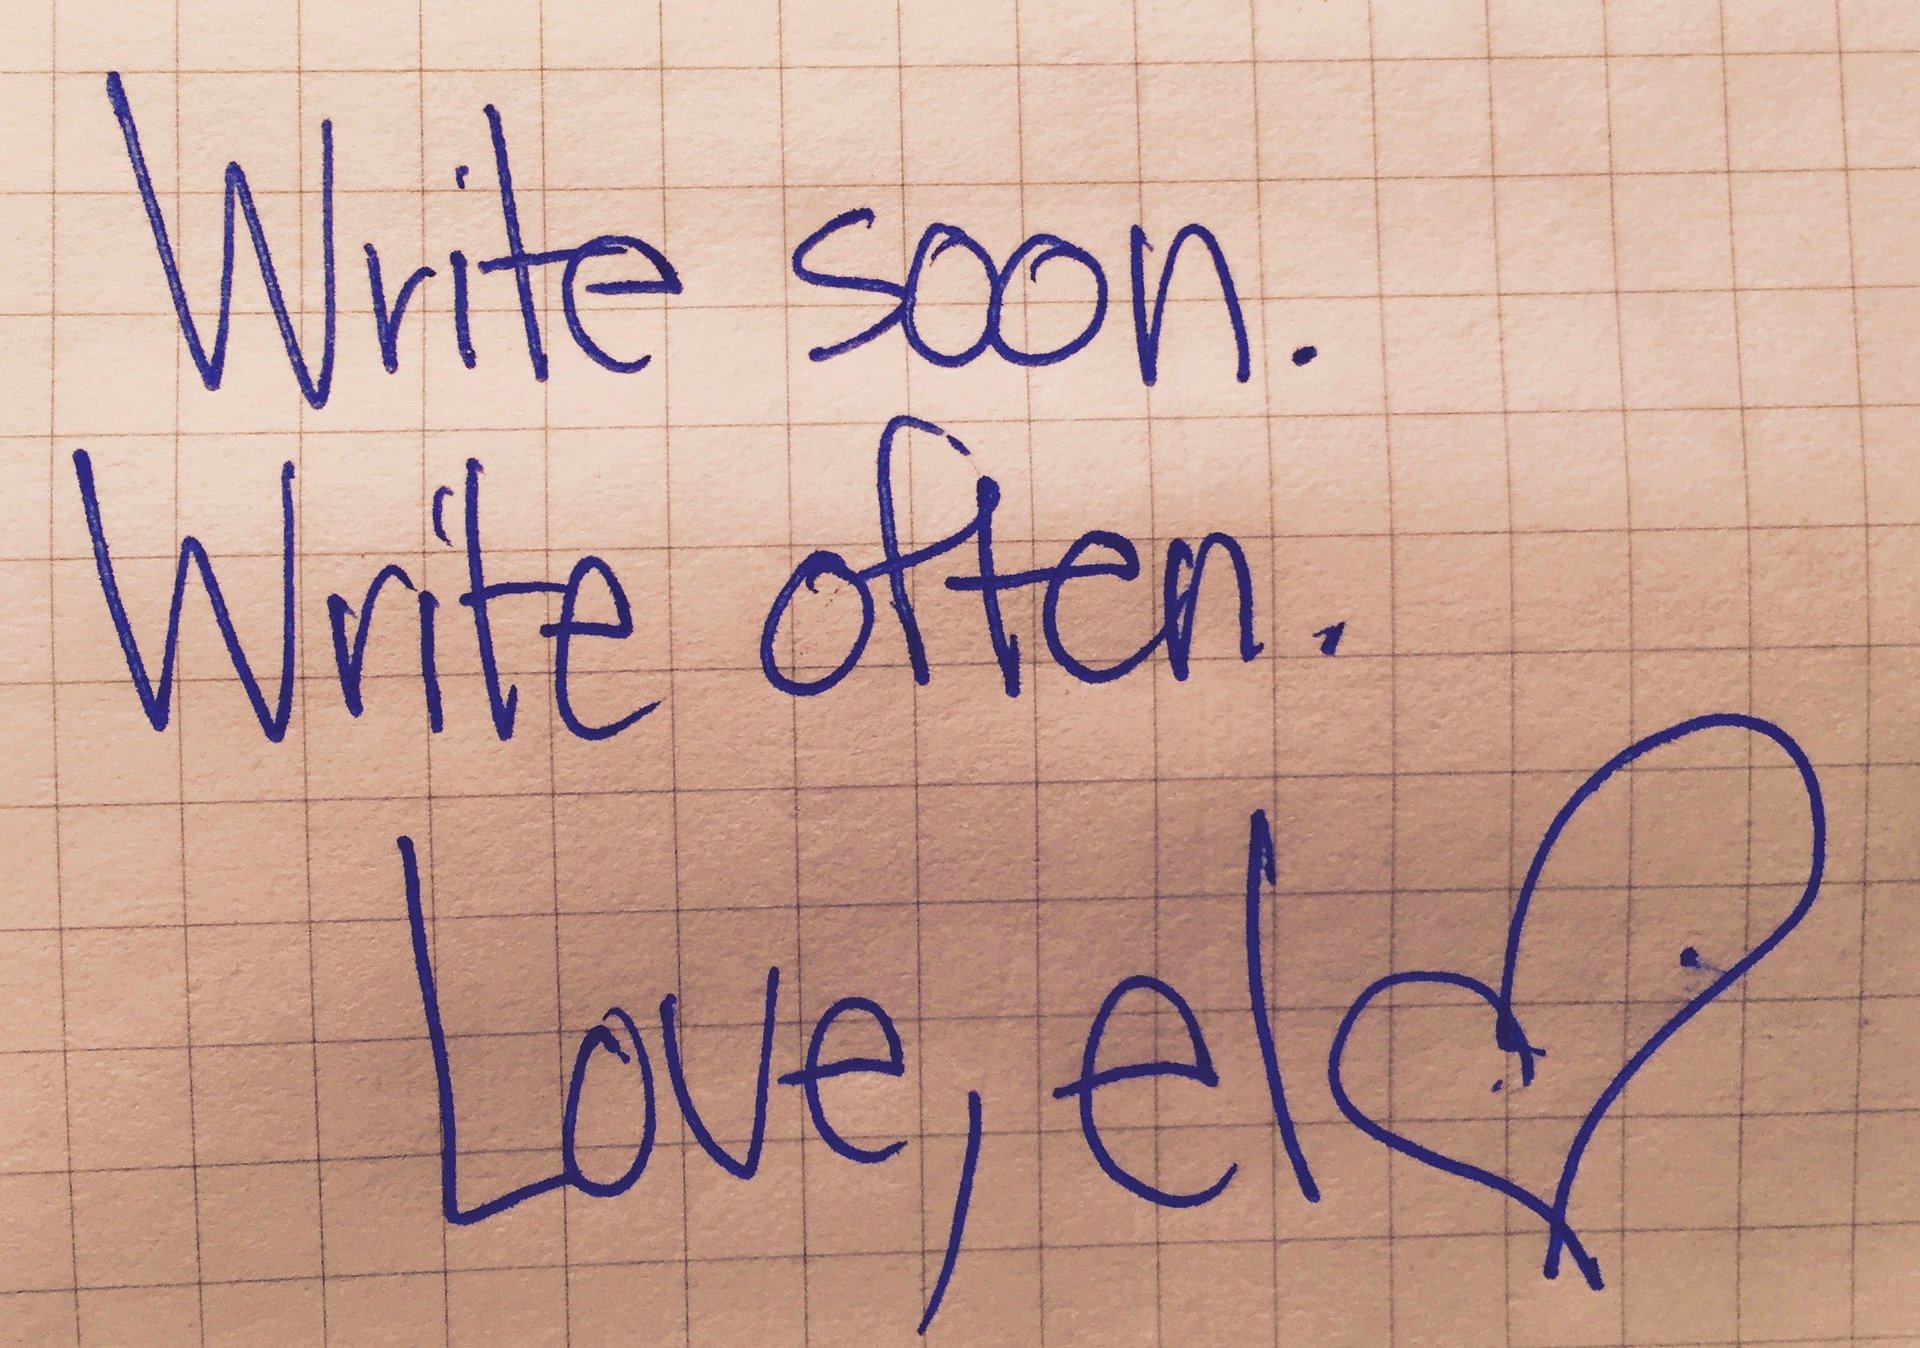 Write soon.
Write often.
Love, el